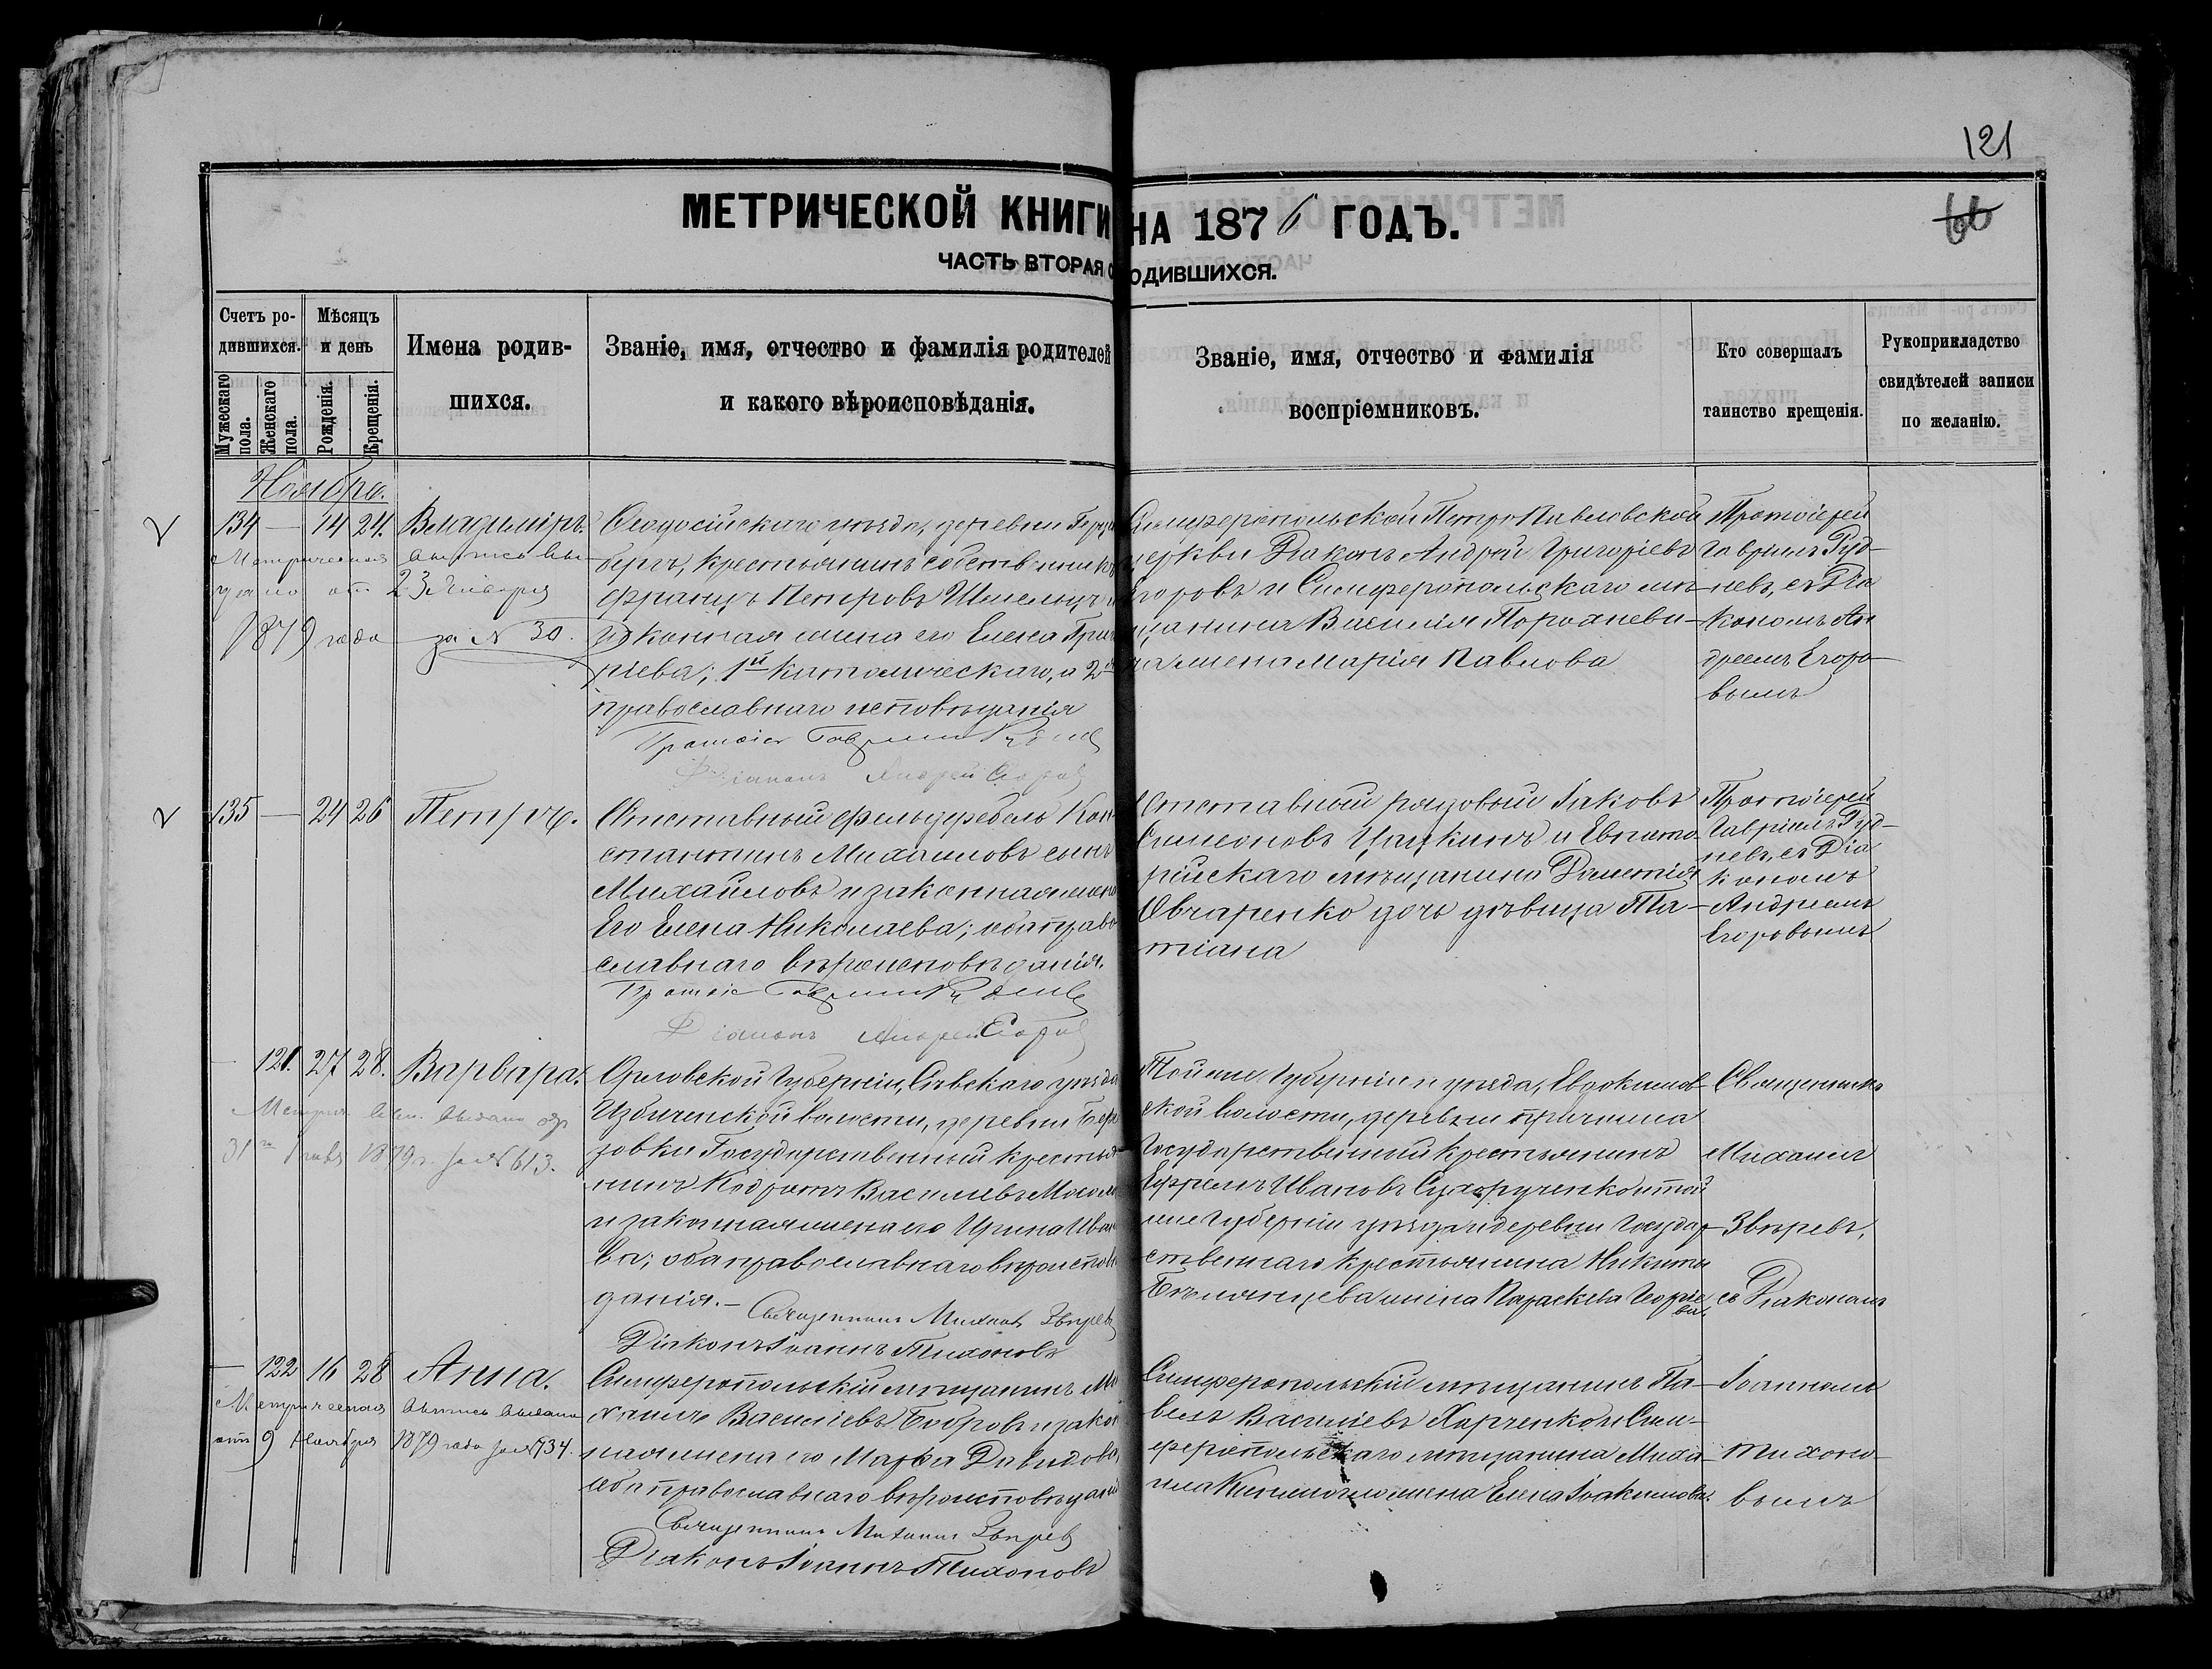 121
66
МЕТРИЧЕСКОЙ КНИГИ НА 1876 ГОДЪ.
ЧАСТЬ ВТОРАЯ О РОДИВШИХСЯ.
Счетъ родившихся.
Мужескаго пола.
Женскаго пола.
Мѣсяцъ и день
Рожденія.
Крещенія.
Имена родив-
шихся.
Званіе, имя, отчество и фамилія родителей
и какого вѣроисповѣданія.
Званіе, имя, отчество и фамилія
воспріемниковъ.
Кто совершалъ
таинство крещенія.
Рукоприкладство
свидѣтелей записи
по желанію.
Ноября.
134 — 14 24. Владиміръ.
Метрическая выпись вы-
дана отъ 23 Января
1879 года за № 30.
Ѳеодосійскаго уѣзда, деревни
бергъ, крестьянинъ собственникъ
Францъ Петровъ и
законная жена его Елена Григо
ріева; 1й католическаго, а 2я
православнаго исповѣданія
Протоіер Гавріилъ Рудневъ
Діаконъ Андрей Егоровъ
Симферопольской Петро Павловской
церкви Діаконъ Андрей Григоріевъ
Егоровъ и Симферопольскаго мѣ-
щанина Василія
жена Марія Павлова
Протоіерей
Гавріилъ Руд-
невъ, съ Діа
кономъ Ан
дреемъ Егоро-
вымъ
135 — 24 26 Петръ.
Отставный фельдфебель Кон-
стантинъ Михаиловъ сынъ
Михайловъ и законная жена
Его Елена Николаева; оба право
славнаго вѣроисповѣданія.
Протоіе Гавріилъ Рудневъ
Діаконъ Андрей Егоровъ
Отставный рядовый Іаковъ
Симеоновъ и Евпато-
рійскаго мѣщанина Димитрія
Овчаренко дочь дѣвица Та-
тіана
Протоіерей
Гавріилъ Руд-
невъ, съ Діа
кономъ
Андреемъ
Егоровымъ
— 121. 27 28. Варвара.
Метрич. вып. выдана
31го 1879 г. за № 613.
Орловской Губерніи, Сѣвскаго уѣзда
волости, деревни Бере
зовки Государственный крестья-
нинъ Кодратъ Василіевъ
и законная жена его Ирина Ива
ва; оба православнаго вѣроисповѣ
данія. — Священникъ Михаилъ Звѣревъ
Діаконъ Іоаннъ Тихоновъ
Той же Губерніи и уѣзда, Евдокимов-
ской волости, деревни
Государственный крестьянинъ
Ефремъ Ивановъ Сухорученко и той
же Губерніи уѣзда и деревни Государ-
ственнаго крестьянина Никиты
жена Параскева Георгіе
ва.
Священникъ
Михаилъ
Звѣревъ,
съ Діакономъ
— 122 16 28 Анна.
Метрическая выпись выдана
отъ 9 Ноября 1879 года за № 734.
Симферопольскій мѣщанинъ Ми
хаилъ Василіевъ Бобровъ и закон
ная жена его Марѳа Давидова,
оба православнаго вѣроисповѣданія
Священникъ Михаилъ Звѣревъ
Діаконъ Іоаннъ Тихоновъ
Симферопольскій мѣщанинъ Па-
велъ Василіевъ Харченко и Сим-
феропольскаго мѣщанина Миха-
ила жена Елена Іоакимова.
Іоанномъ
Тихоно-
вымъ